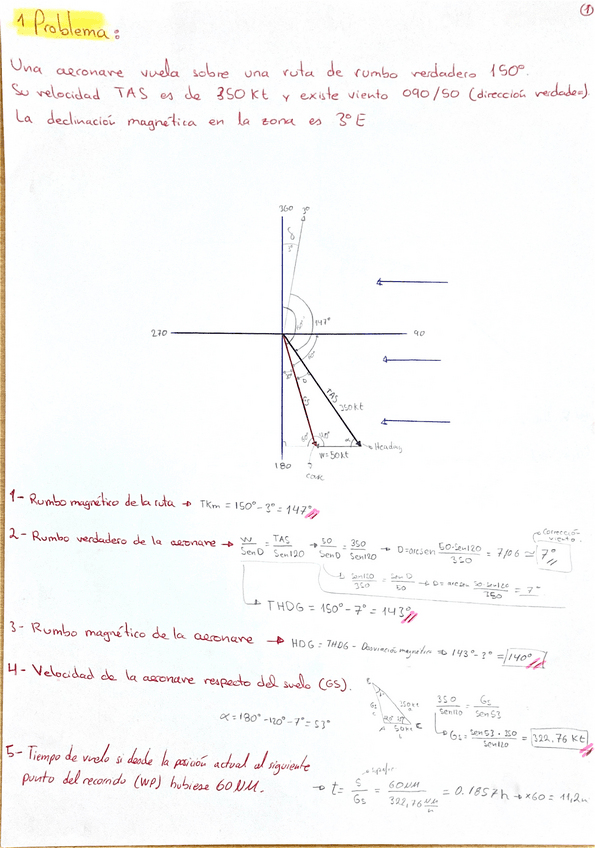 1
1 Problema:
Una aeronave vuela sobre una ruta de rumbo verdadero 150°.
Su velocidad TAS es de 350 Kt y existe viento 090/50 (dirección verdade=).
La declinación magnética en la zona es 3°E
360 3°
3°
147°
270 90
TAS
350 Kt
GS
120°
Heading
W=50Kt
180
1- Rumbo magnético de la ruta → TKm = 150° - 3° = 147°
Corrección
viento.
2- Rumbo verdadero de la aeronave → W/SenD = TAS/Sen120 → 50/SenD = 350/Sen120 → D=arcsen 50·Sen120/350 = 7/06 ≃ 7°
Sen120/350 = SenD/50 → D= arcsen 50·Sen120/350 = 7°
THDG = 150° - 7° = 143°
3- Rumbo magnético de la aeronave → HDG = THDG - Desviación magnética → 143° - 3° = 140°
4- Velocidad de la aeronave respecto del suelo (GS).
350/sen120 = Gs/sen53
α = 180° - 120° - 7° = 53°
Gs = sen53·350/sen120 = 322,76 Kt
5- Tiempo de vuelo si desde la posición actual al siguiente
punto del recorrido (WP) hubiese 60NM.
→ t = S/Gs = 60NM/322,76 NM/h = 0.1857h → x60 = 11,2m